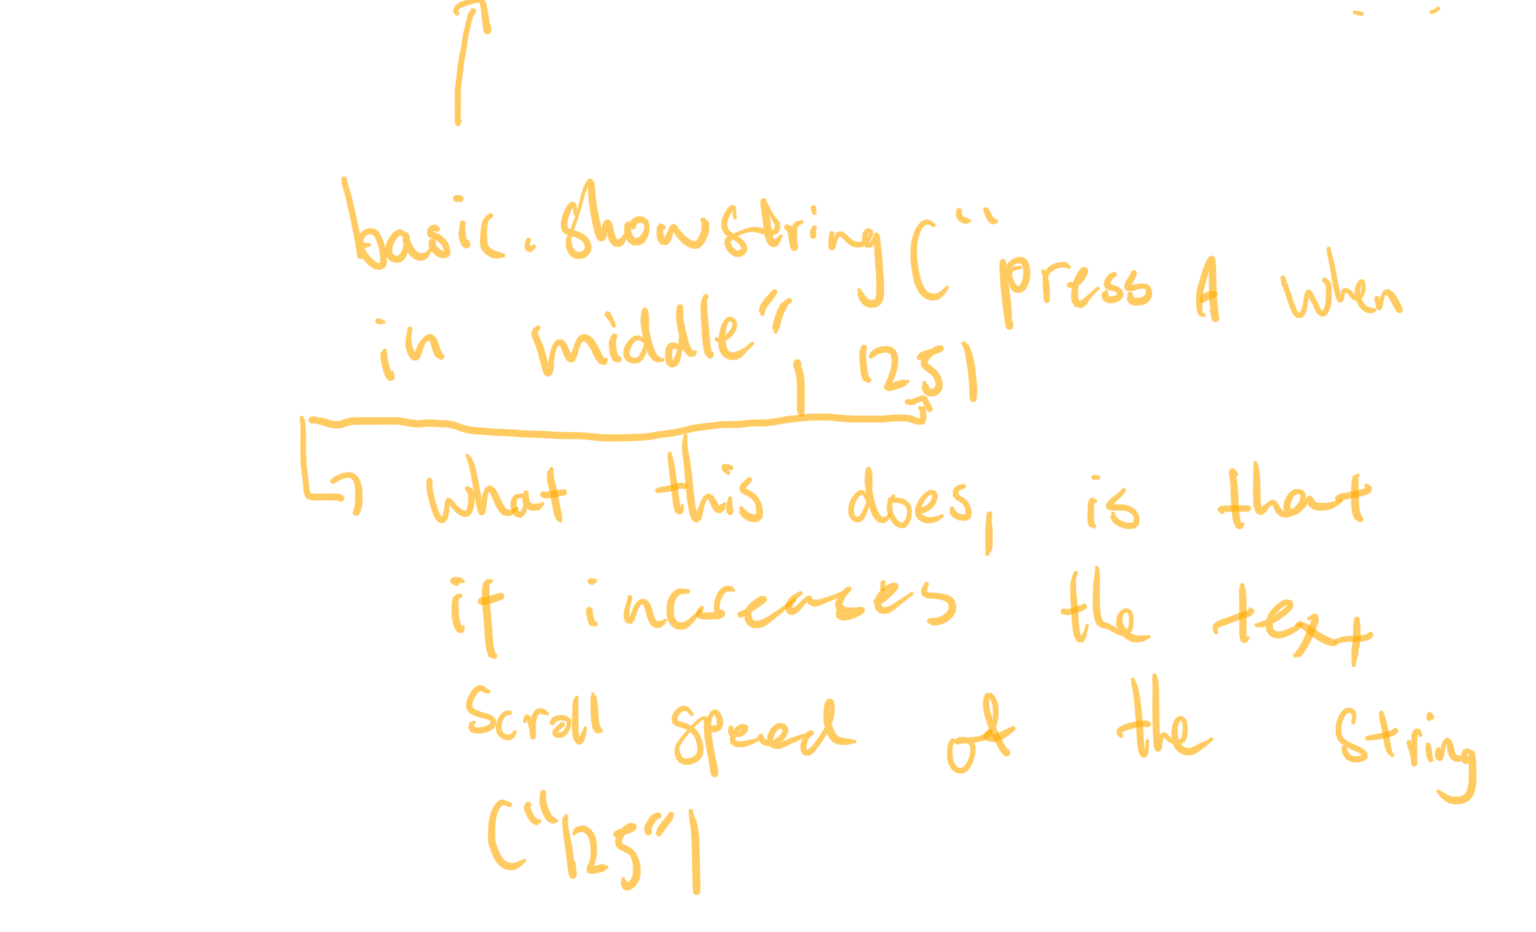 basic.showstring(“press A when
in middle” 125)
what this does, is that
if increases the text
scroll speed of the string
(“125”)